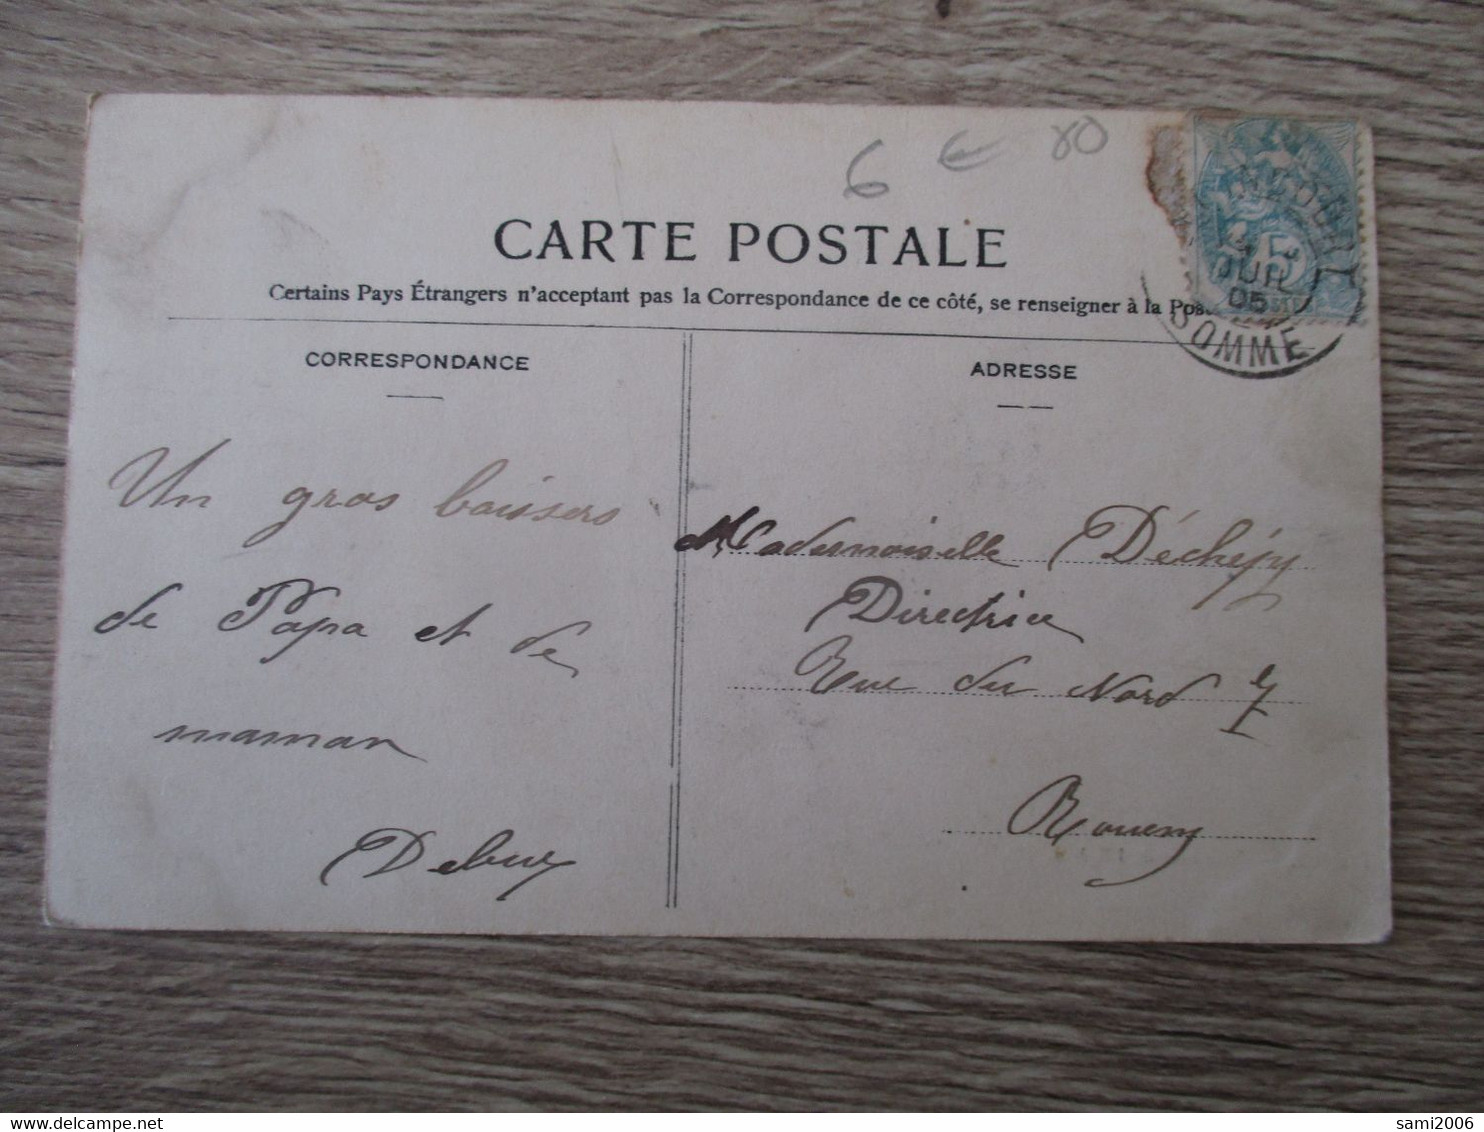 6 € 80
CARTE POSTALE
Certains Pays Étrangers n'acceptant pas la Correspondance de ce côté, se renseigner à la Poste
CORRESPONDANCE
ADRESSE
5
JUIL
05
SOMME
Un gros baisers
de Papa et de
maman
Mademoiselle
Directrice
Rue du Nord
Rouen
sami2006